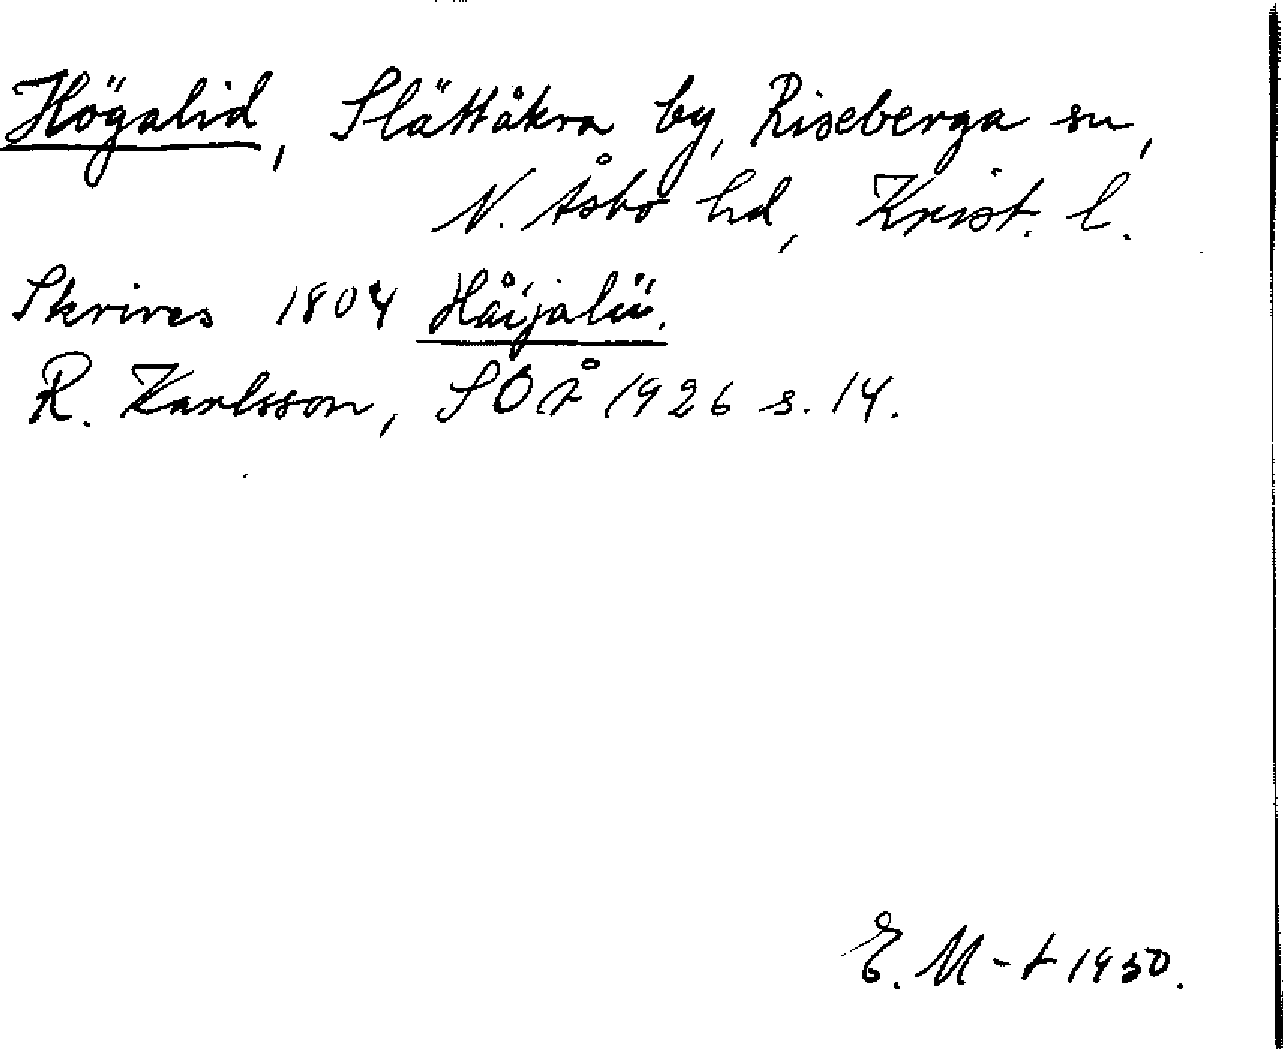 Högalid, Slättåkra by, Riseberga sn,
N. Åsbo hd, Krist. l.
Skrives 1804 Håijalii.
R. Karlsson, SOÅ 1926 s. 14.
E. M-t 1950.